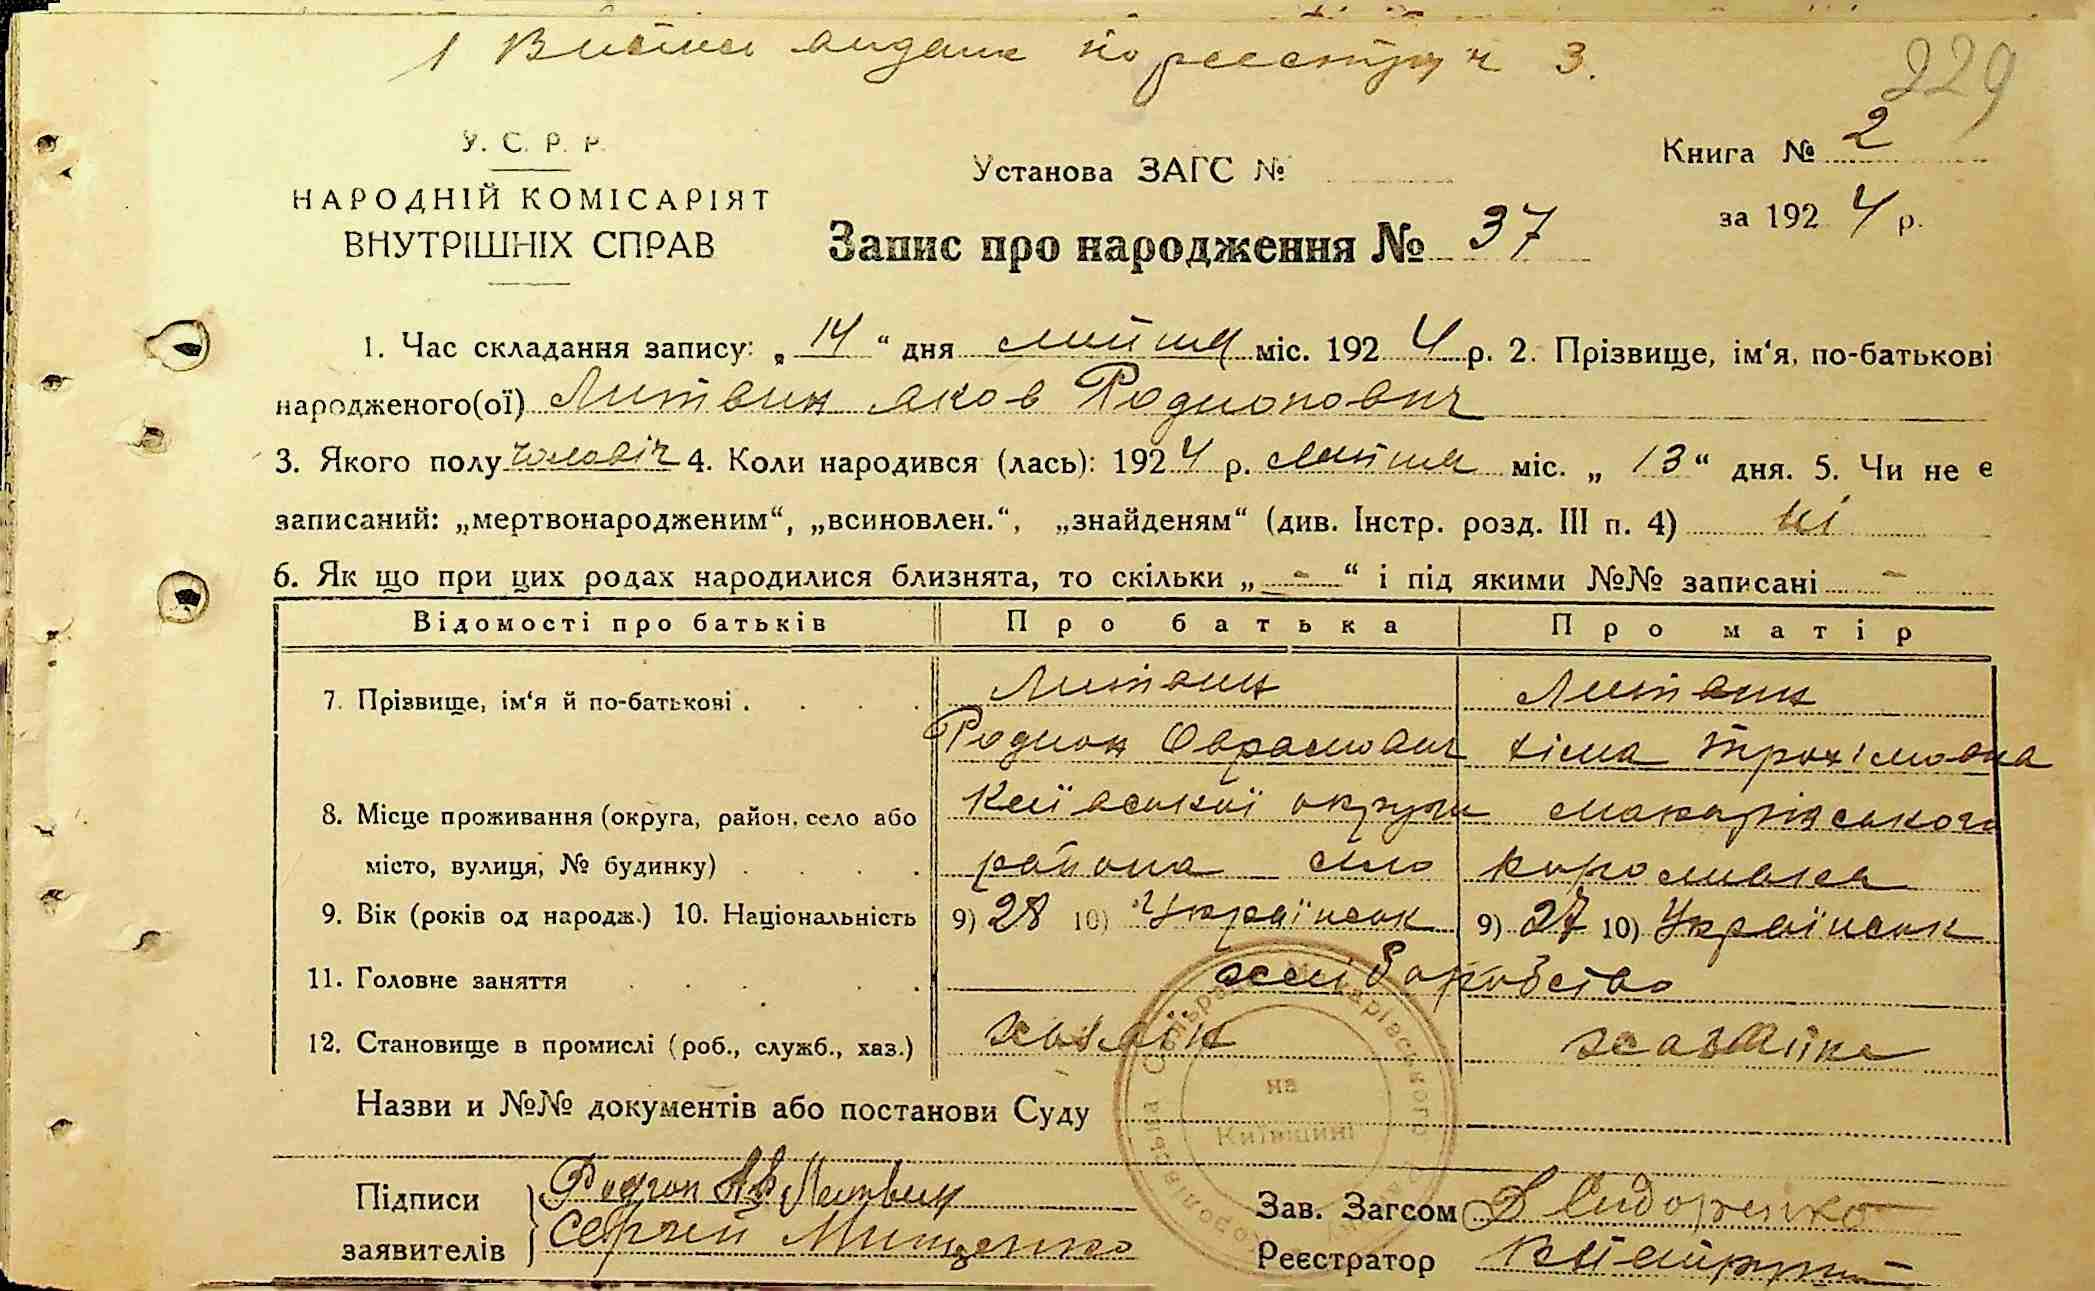 1 Витяг видано по реєстру ч 3.
229
У. С. Р. Р.
НАРОДНІЙ КОМІСАРІЯТ
ВНУТРІШНІХ СПРАВ
Установа ЗАГС №
Книга № 2
за 1924 р.
Запис про народження № 37
1. Час складання запису: „14“ дня липця міс. 1924 р. 2. Прізвище, ім‘я, по-батькові
народженого(ої) Литвин Яков Родионович
3. Якого полу чоловіч 4. Коли народився (лась): 1924 р. липця міс. „13“ дня. 5. Чи не є
записаний: „мертвонародженим“, „всиновлен.“, „знайденям“ (див. Інстр. розд. III п. 4) ні
6. Як що при цих родах народилися близнята, то скільки „-“ і під якими №№ записані -
Відомості про батьків Про батька Про матір
7. Прізвище, ім‘я й по-батькові . Литвин Литвин
Родион Оврамович Хіма Трохімовна
8. Місце проживання (округа, район, село або Київської округи Макарівського
місто, вулиця, № будинку) района село Королівка
9. Вік (років од народж.) 10. Національність 9) 28 10) Українськ 9) 27 10) Українськ
11. Головне заняття хліборобство
12. Становище в промислі (роб., служб., хаз.) хазяїн хазяїнка
Назви и №№ документів або постанови Суду
на
Київщині
Підписи Родион Литвин
заявителів Сергій Мищенко
Зав. Загсом Сидоренко
Реєстратор